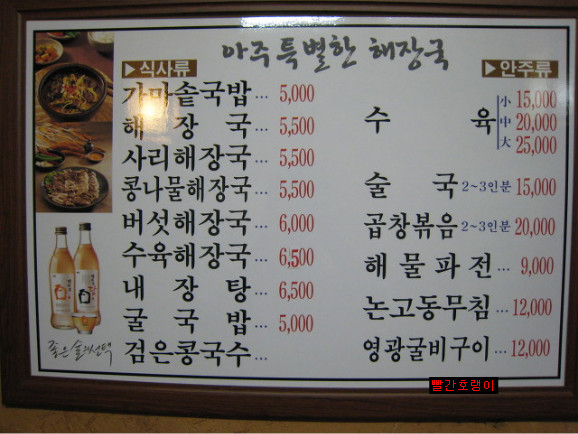 아주 특별한 해장국
▶식사류
가마솥국밥 ... 5,000
해장국 ... 5,500
사리해장국 ... 5,500
콩나물해장국 ... 5,500
버섯해장국 ... 6,000
수육해장국 ... 6,500
내장탕 ... 6,500
굴국밥 ... 5,000
검은콩국수 ...
▶안주류
수육 小 15,000
中 20,000
大 25,000
술국 2~3인분 15,000
곱창볶음 2~3인분 20,000
해물파전 ... 9,000
논고동무침 ... 12,000
영광굴비구이 ... 12,000
좋은 술의 선택
빨간호랭이